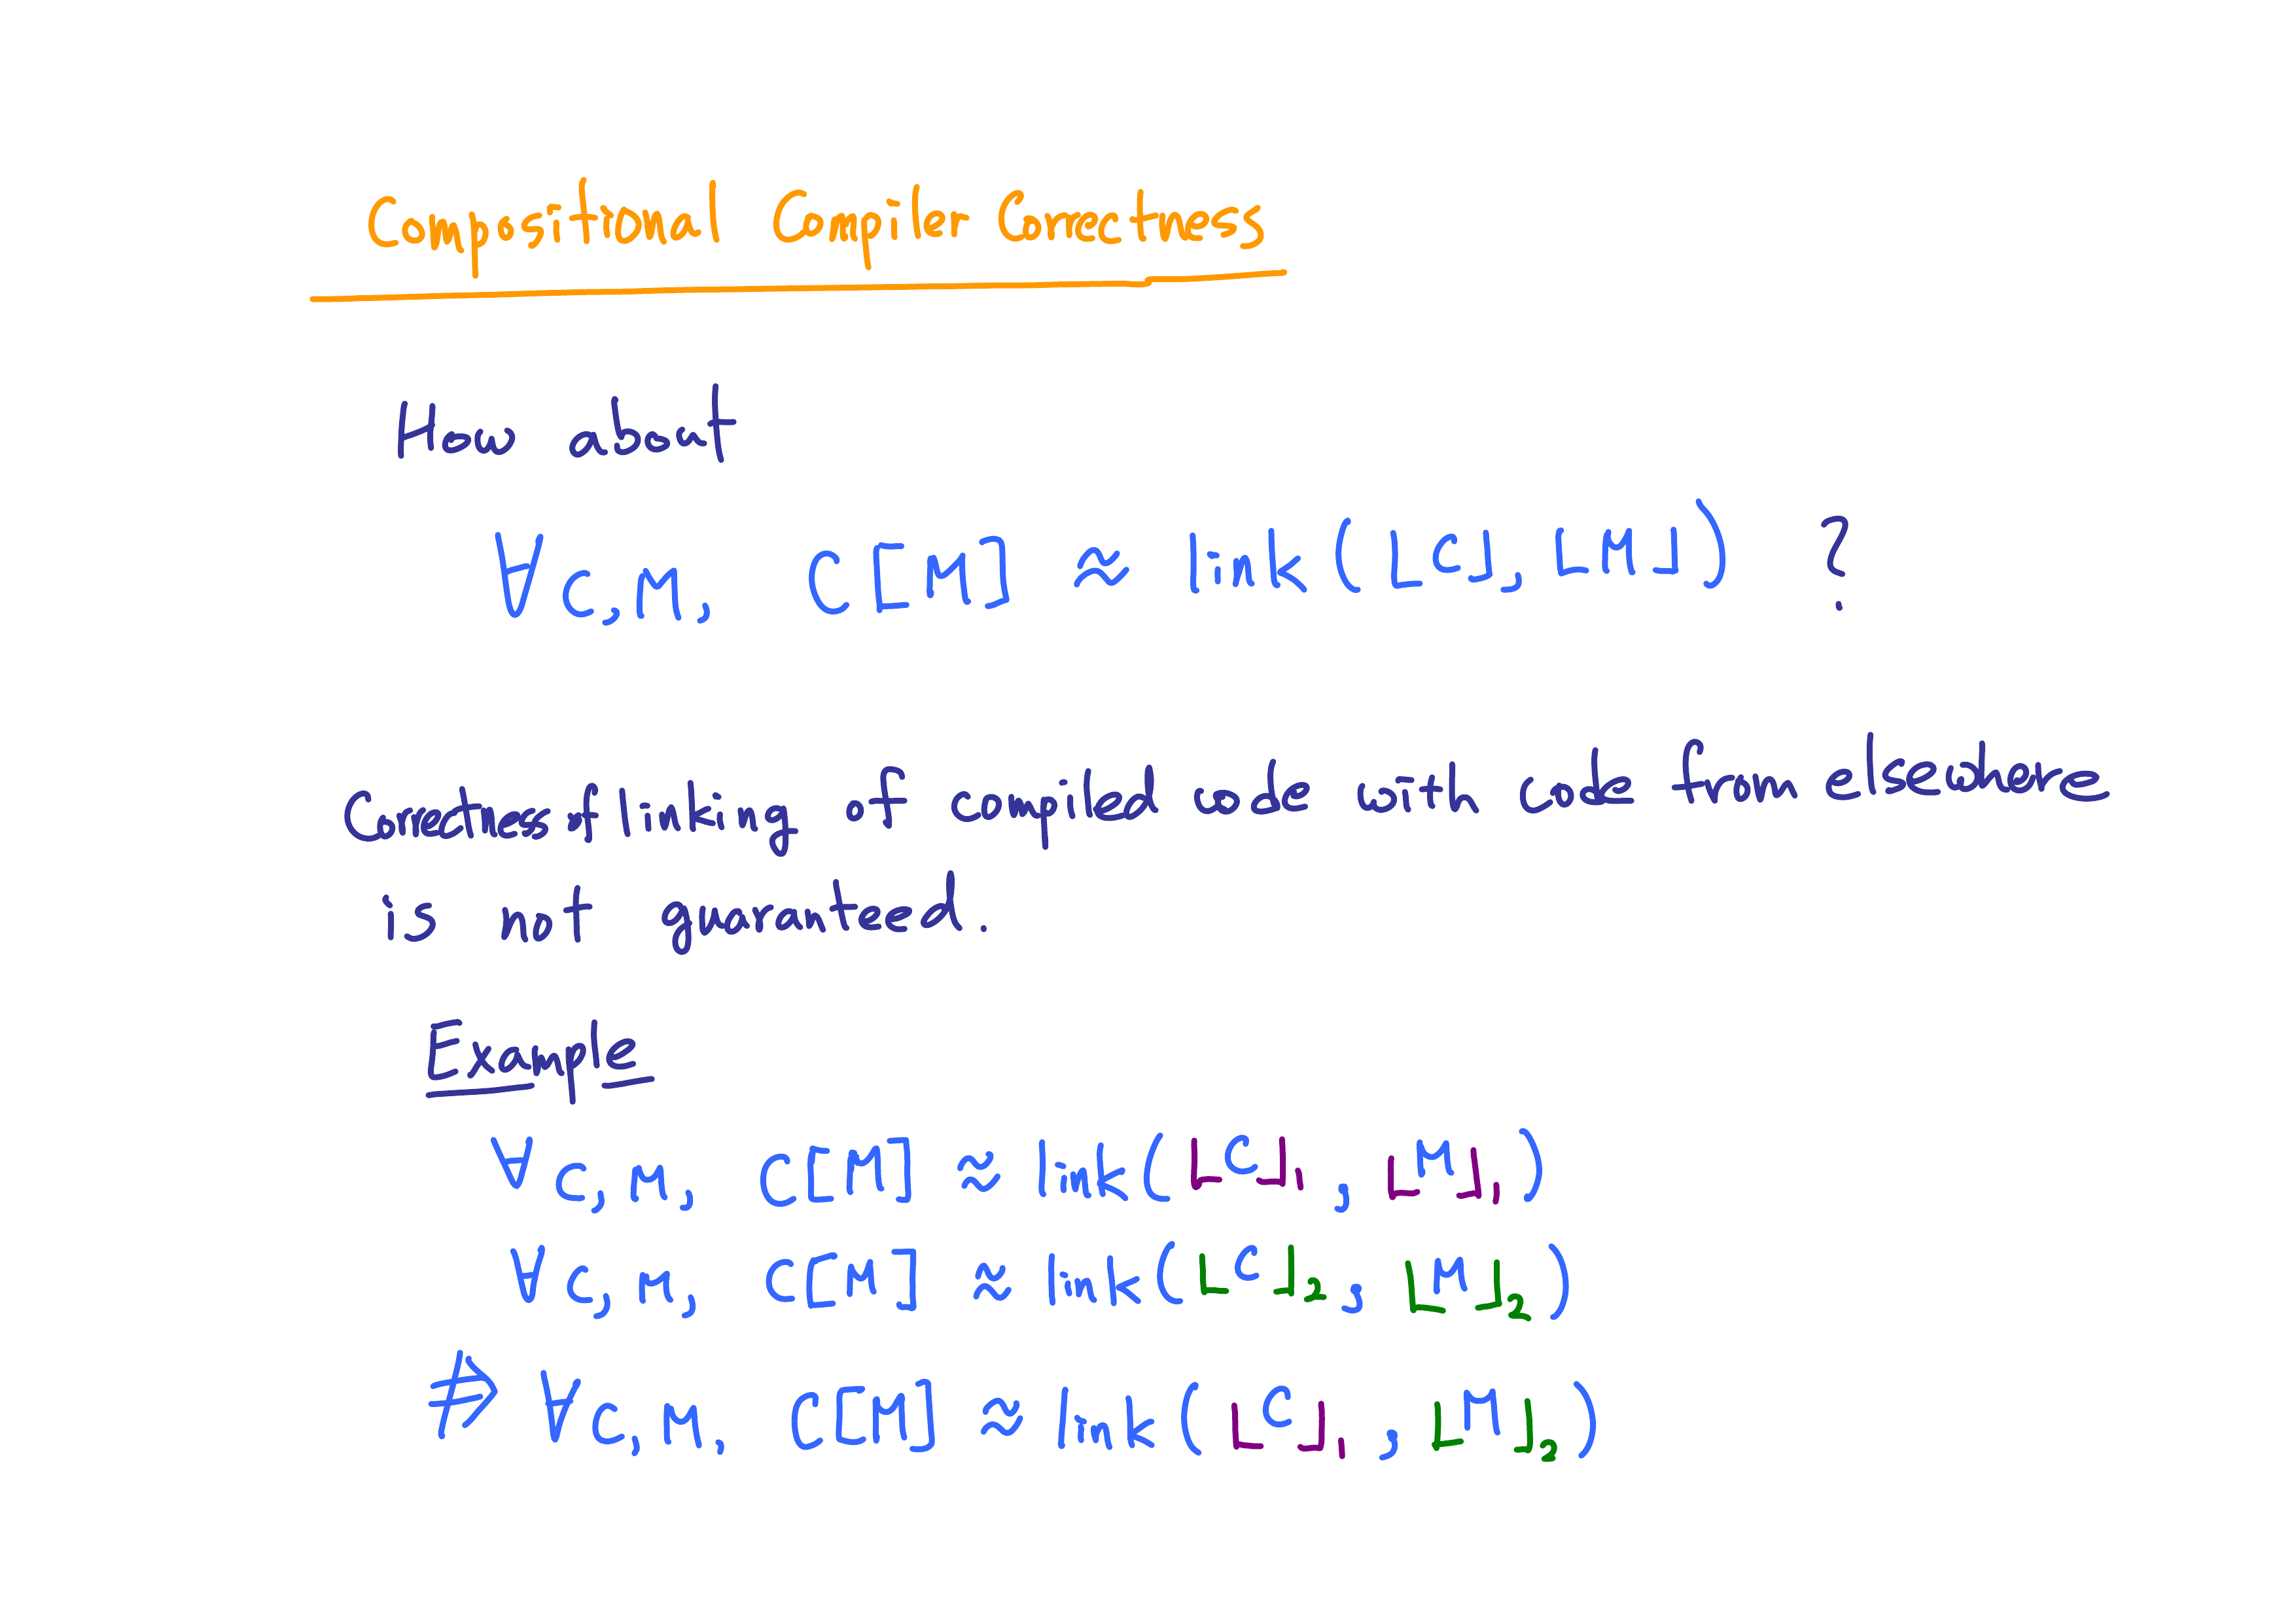 Compositional Compiler Correctness
How about
∀C,M, C[M] ≈ link(⌊C⌋, ⌊M⌋) ?
Correctness of linking of compiled code with code from elsewhere
is not guaranteed.
Example
∀C,M, C[M] ≈ link(⌊C⌋₁, ⌊M⌋₁)
∀C,M, C[M] ≈ link(⌊C⌋₂, ⌊M⌋₂)
⇏ ∀C,M, C[M] ≈ link(⌊C⌋₁, ⌊M⌋₂)